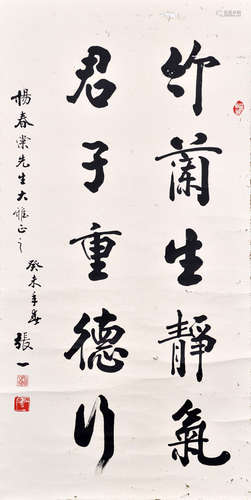 竹蘭生靜氣
君子重德行
楊春棠先生大雅正之
癸未年春 張一